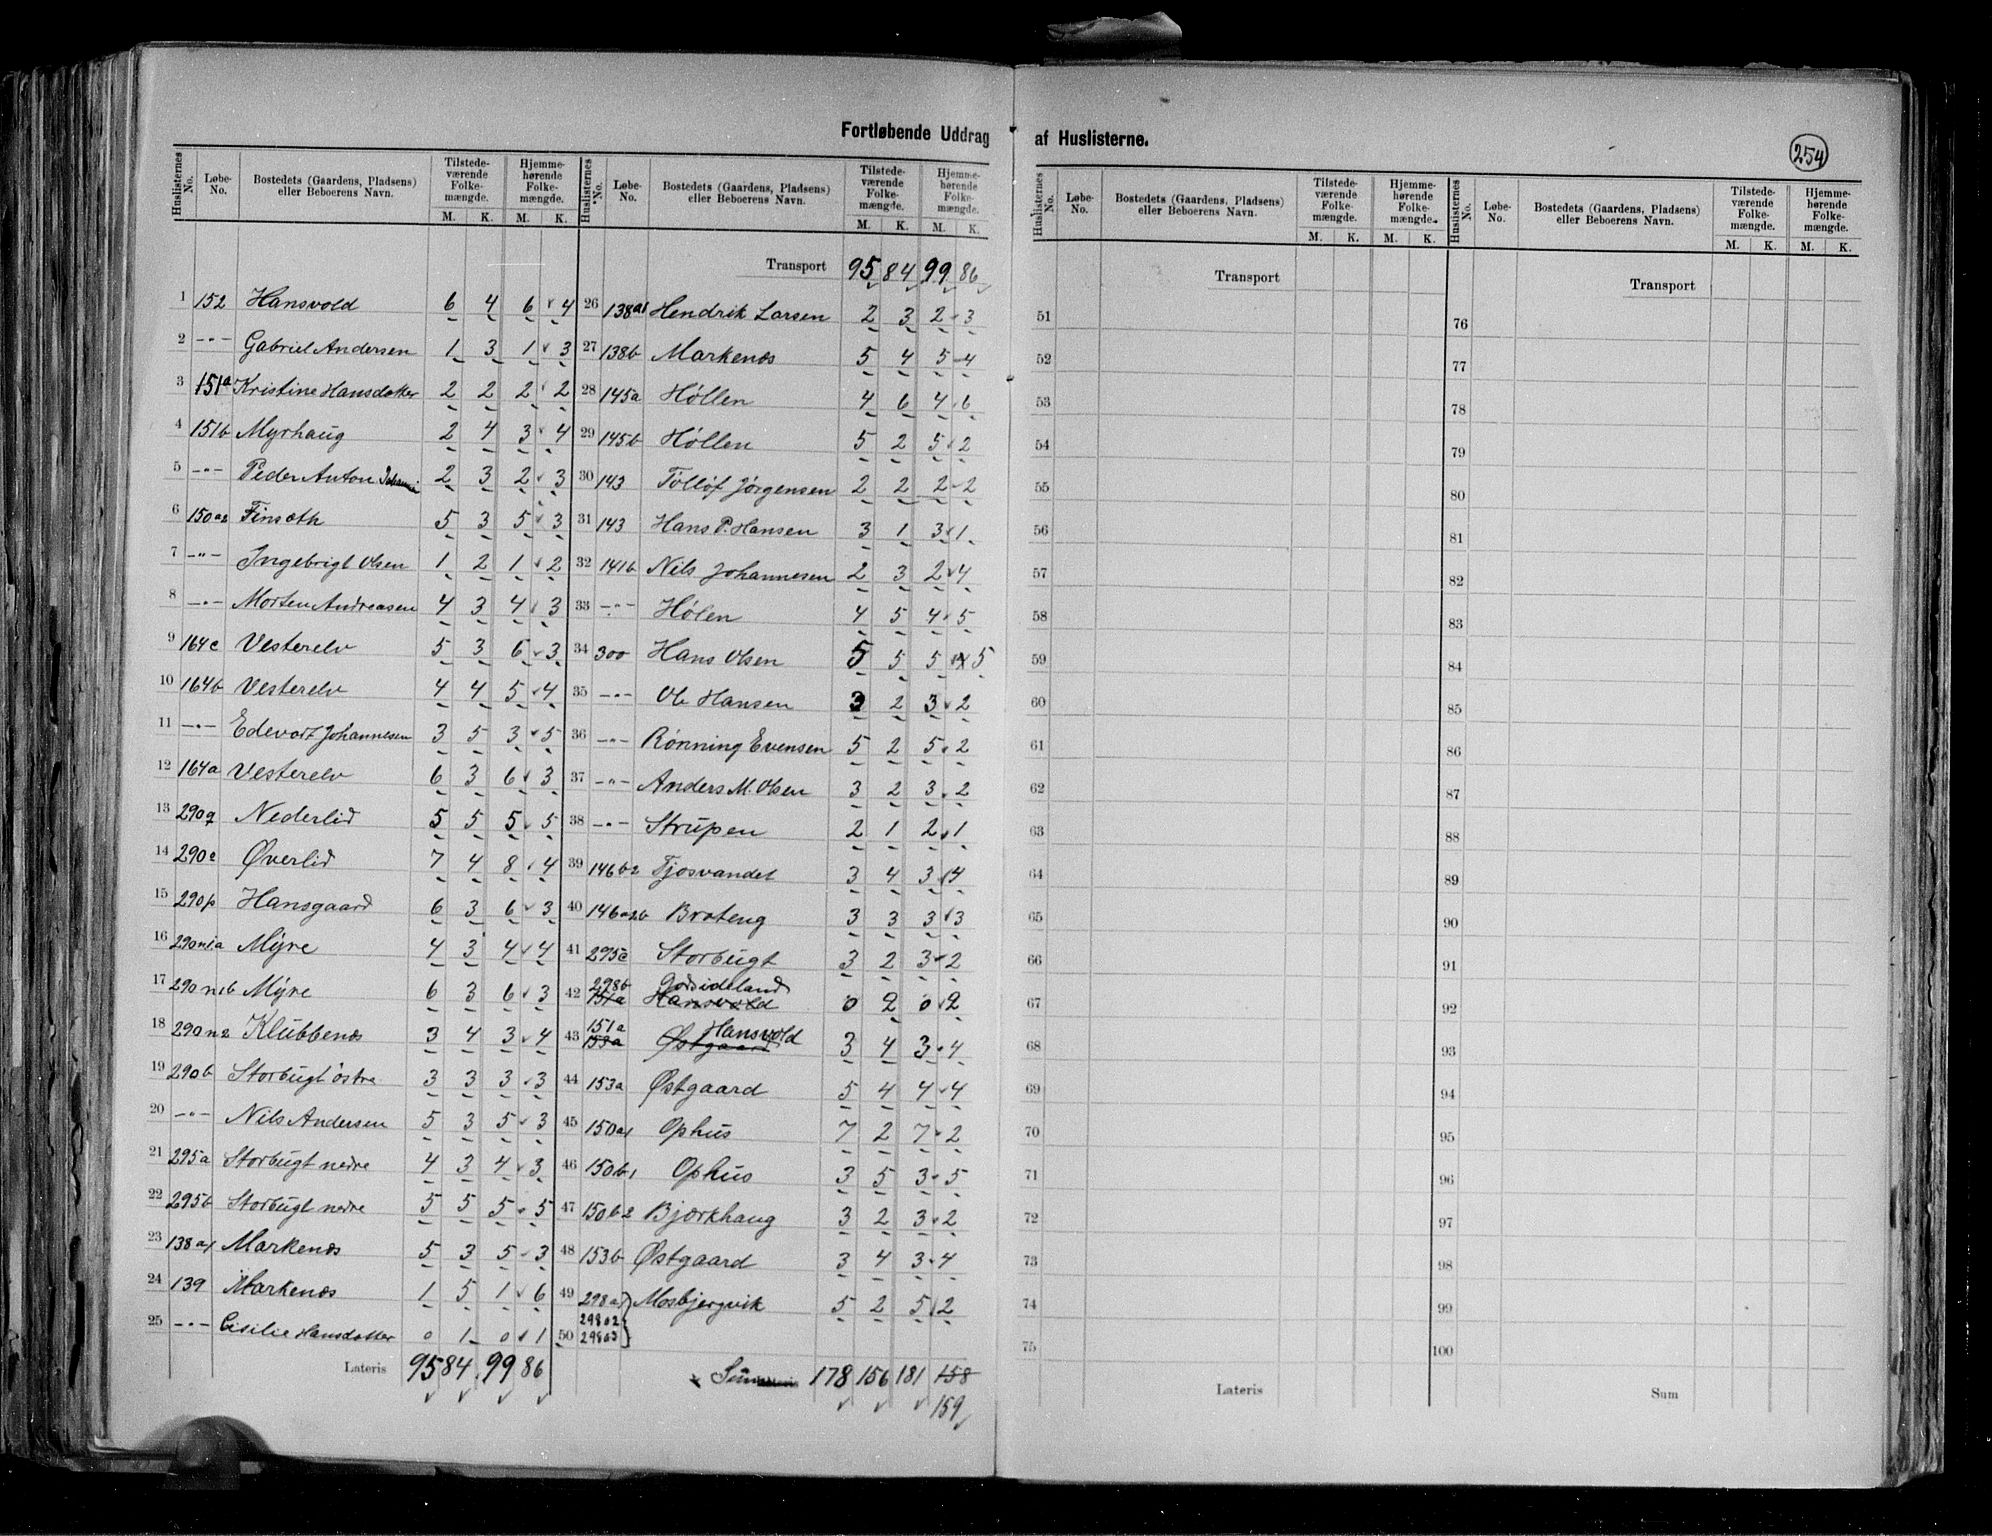 Fortløbende Uddrag af Huslisterne.
254
Huslisternes No. Løbe-No. Bostedets (Gaardens, Pladsens) eller Beboerens Navn. Tilstedeværende Folkemængde. M. K. Hjemmehørende Folkemængde. M. K.
1 152 Hansvold 6 4 6 4
2 -"- Gabriel Andersen 1 3 1 3
3 151a Kristine Hansdatter 2 2 2 2
4 151b Myrhaug 2 4 3 4
5 -"- Peder Anton 2 3 2 3
6 150a2 Finsæth 5 3 5 3
7 -"- Ingebrigt Olsen 1 2 1 2
8 -"- Morten Andreasen 4 3 4 3
9 164c Vesterelv 5 3 6 3
10 164b Vesterelv 4 4 5 4
11 -"- Edevart Johannesen 3 5 3 5
12 164a Vesterelv 6 3 6 3
13 290q Nederlid 5 5 5 5
14 290e Øverlid 7 4 8 4
15 290p Hansgaard 6 3 6 3
16 290n1a Myre 4 3 4 4
17 290n1b Myre 6 3 6 3
18 290n2 Klubbenæs 3 4 3 4
19 290b Storbugt østre 3 3 3 3
20 -"- Nils Andersen 5 3 5 3
21 295a Storbugt nedre 4 3 4 3
22 295b Storbugt nedre 5 5 5 5
23 138a1 Markenæs 5 3 5 3
24 139 Markenæs 1 5 1 6
25 -"- Cisilie Hansdatter 0 1 0 1
Lateris 95 84 99 86
Huslisternes No. Løbe-No. Bostedets (Gaardens, Pladsens) eller Beboerens Navn. Tilstedeværende Folkemængde. M. K. Hjemmehørende Folkemængde. M. K.
Transport 95 84 99 86
26 138a1 Hendrik Larsen 2 3 2 3
27 138b Markenæs 5 4 5 4
28 145a Høllen 4 6 4 6
29 145b Høllen 5 2 5 2
30 143 Tollof Jørgensen 2 2 2 2
31 143 Hans P. Hansen 3 1 3 1
32 141b Nils Johannesen 2 3 2 4
33 -"- Hølen 4 5 4 5
34 300 Hans Olsen 5 5 5 5
35 -"- Ole Hansen 3 2 3 2
36 -"- Rønning Evensen 5 2 5 2
37 -"- Anders M. Olsen 3 2 3 2
38 -"- Strupen 2 1 2 1
39 146b2 Tjosvandet 3 4 3 4
40 146a2b Brateng 3 3 3 3
41 295c Storbugt 3 2 3 2
298b Godsideland
42 151a Hansvold 0 2 0 2
151a Hansvold
43 153a Østgaard 3 4 3 4
44 153a Østgaard 5 4 4 4
45 150a1 Ophus 7 2 7 2
46 150b1 Ophus 3 5 3 5
47 150b2 Bjørkhaug 3 2 3 2
48 153b Østgaard 3 4 3 4
49 298a1 Mosbjergvik 5 2 5 2
298a2
50 298a3
Sum 178 156 181 158
159
Huslisternes No. Løbe-No. Bostedets (Gaardens, Pladsens) eller Beboerens Navn. Tilstedeværende Folkemængde. M. K. Hjemmehørende Folkemængde. M. K.
Transport
51
52
53
54
55
56
57
58
59
60
61
62
63
64
65
66
67
68
69
70
71
72
73
74
75
Lateris
Huslisternes No. Løbe-No. Bostedets (Gaardens, Pladsens) eller Beboerens Navn. Tilstedeværende Folkemængde. M. K. Hjemmehørende Folkemængde. M. K.
Transport
76
77
78
79
80
81
82
83
84
85
86
87
88
89
90
91
92
93
94
95
96
97
98
99
100
Sum